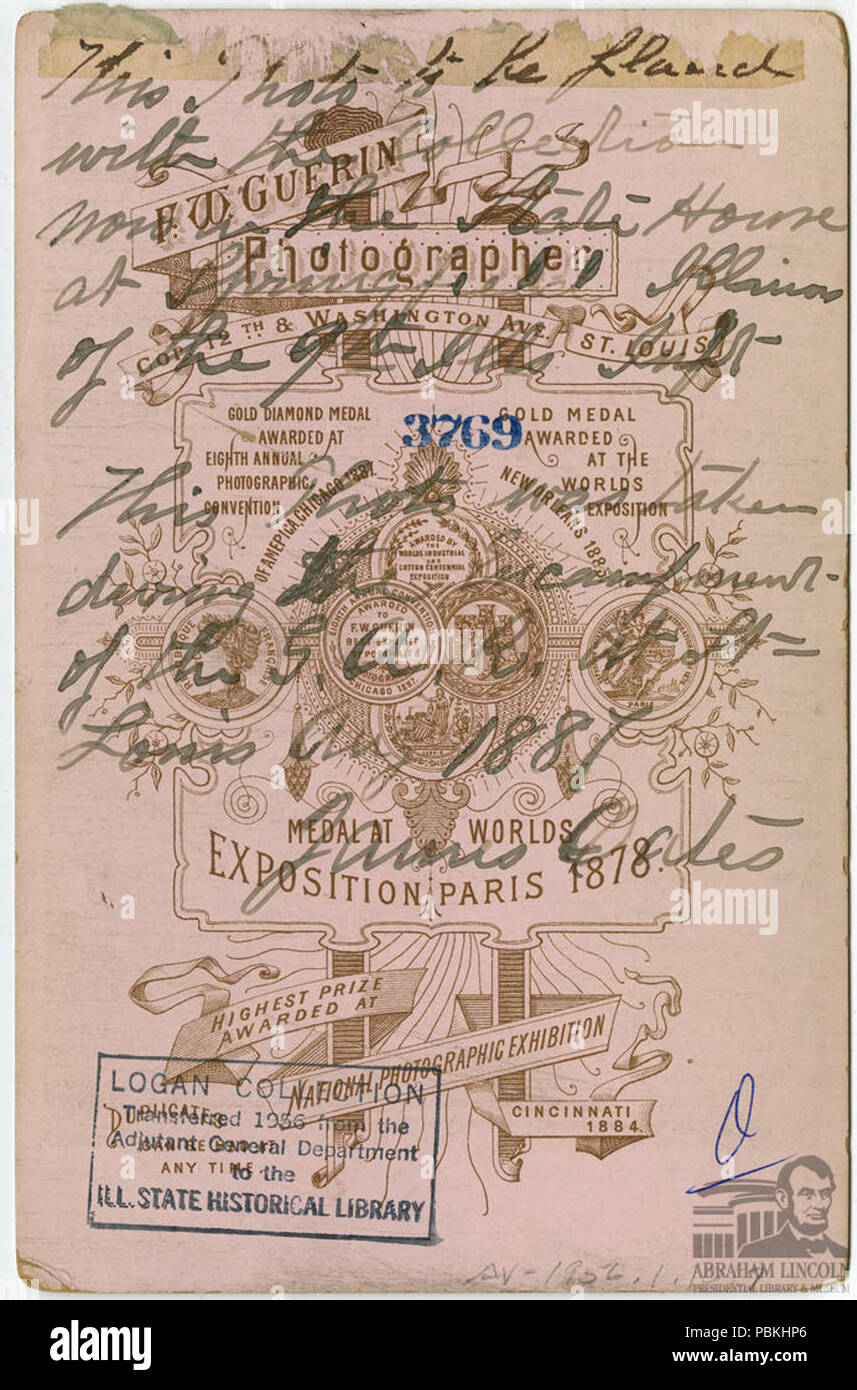 This Photo to be placed
with the Collection
now in the State House
at Springfield Illinois
of the 9th Ills Inft
This Photo was taken
during the Encampment
of the G. A. R. at St
Louis Aug 1887
James Oates
F. W. GUERIN
Photographer
COR. 12TH & WASHINGTON AVE. ST. LOUIS
GOLD DIAMOND MEDAL
AWARDED AT
EIGHTH ANNUAL
PHOTOGRAPHIC
CONVENTION
OF AMERICA, CHICAGO 1887.
3769
GOLD MEDAL
AWARDED
AT THE
WORLDS
EXPOSITION
NEW ORLEANS 1885
AWARDED BY
THE
WORLDS INDUSTRIAL
AND
COTTON CENTENNIAL
EXPOSITION
EIGHTH ANNUAL CONVENTION
AWARDED
TO
F. W. GUERIN
CHICAGO 1887
REPUBLIQUE FRANCAISE
PARIS
MEDAL AT WORLDS
EXPOSITION PARIS 1878.
HIGHEST PRIZE
AWARDED AT
NATIONAL PHOTOGRAPHIC EXHIBITION
CINCINNATI
1884.
DUPLICATES
CAN BE HAD AT
ANY TIME.
LOGAN COLLECTION
Transferred 1956 from the
Adjutant General Department
to the
ILL. STATE HISTORICAL LIBRARY
O
AV-1956.1.
ABRAHAM LINCOLN
PRESIDENTIAL LIBRARY & MUSEUM
alamy
alamy
Image ID: PBKHP6
www.alamy.com